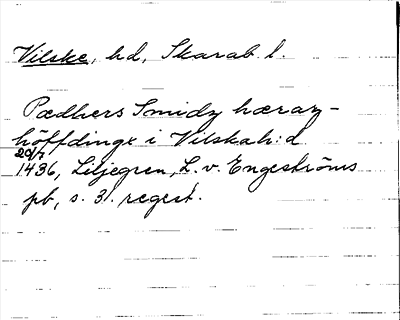 Vilske, hd, Skarab. l.
Pædhers Smidz høræz-
höffdinge i Vilskah:d
20/7
1436, Liljegren, L. v. Engeströms
pb, s. 31. regest.